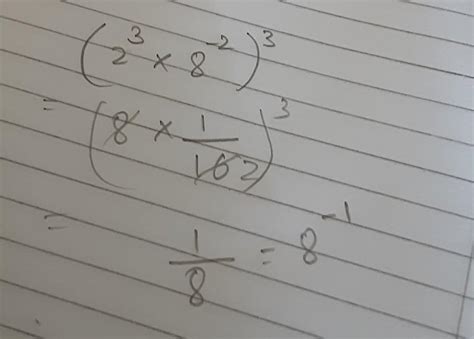 (2³ × 8⁻²)³
= (8 × 1/16 2)³
= 1/8 = 8⁻¹